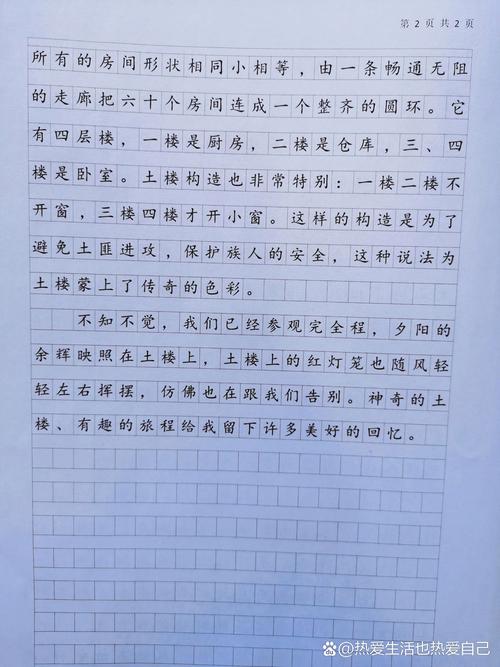 第 2 页 共 2 页
所有的房间形状相同小相等，由一条畅通无阻
的走廊把六十个房间连成一个整齐的圆环。它
有四层楼，一楼是厨房，二楼是仓库，三、四
楼是卧室。土楼构造也非常特别：一楼二楼不
开窗，三楼四楼才开小窗。这样的构造是为了
避免土匪进攻，保护族人的安全，这种说法为
土楼蒙上了传奇的色彩。
不知不觉，我们已经参观完全程，夕阳的
余辉映照在土楼上，土楼上的红灯笼也随风轻
轻左右挥摆，仿佛也在跟我们告别。神奇的土
楼、有趣的旅程给我留下许多美好的回忆。
@热爱生活也热爱自己